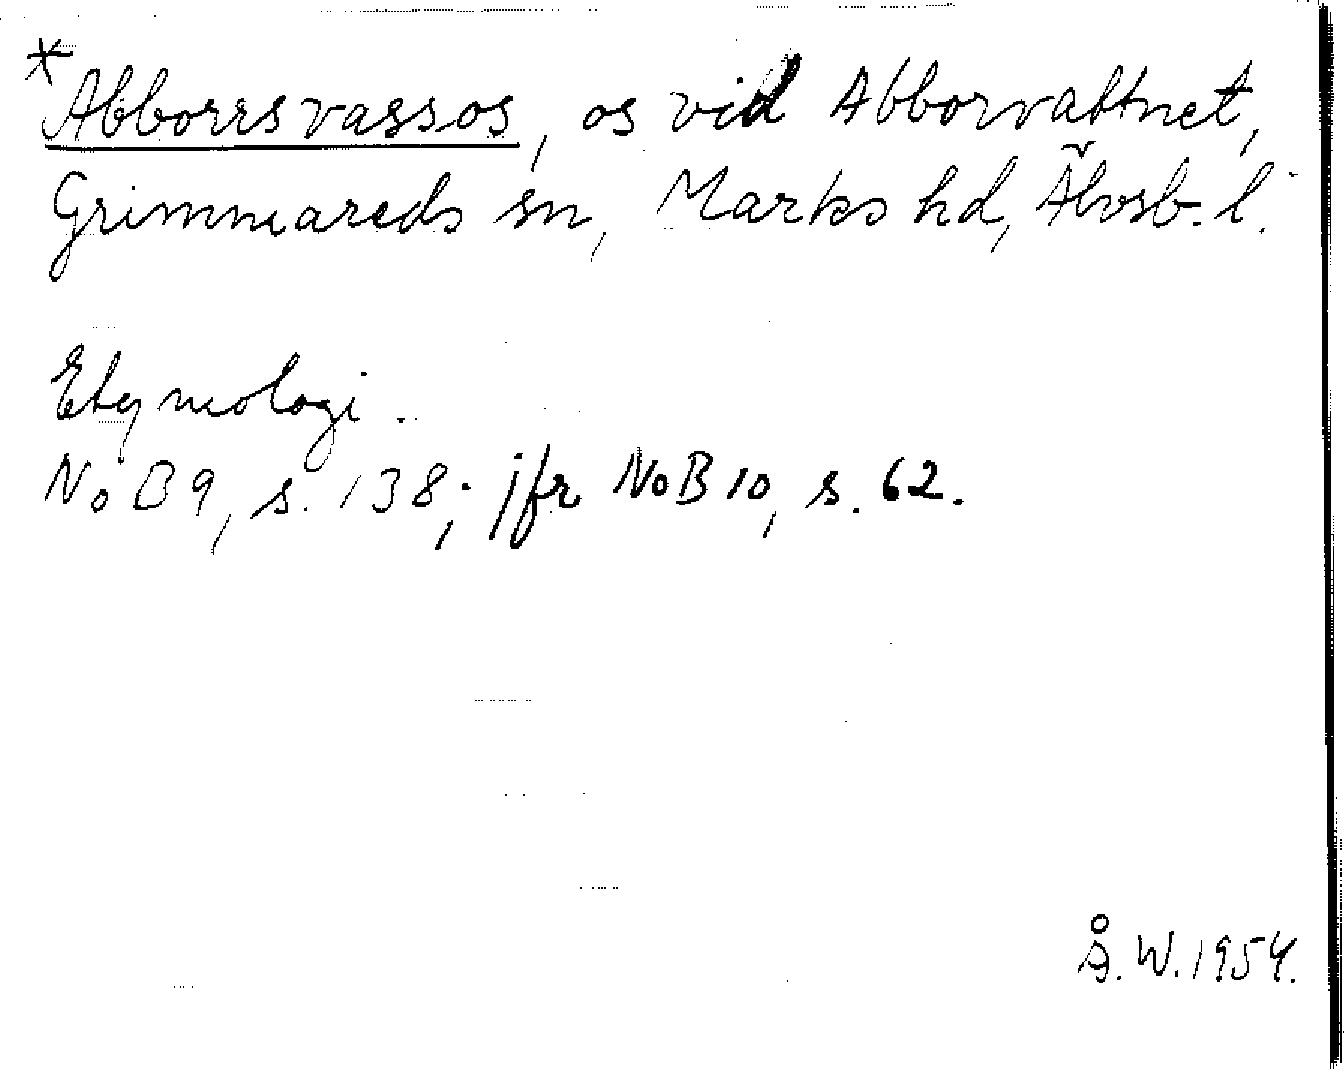 *Abborrsvassos, os vid Abborvattnet,
Grimmareds sn, Marks hd, Älvsb. l.
Etymologi.
NoB 9, s. 138; jfr NoB 10, s. 62.
Å. W. 1954.